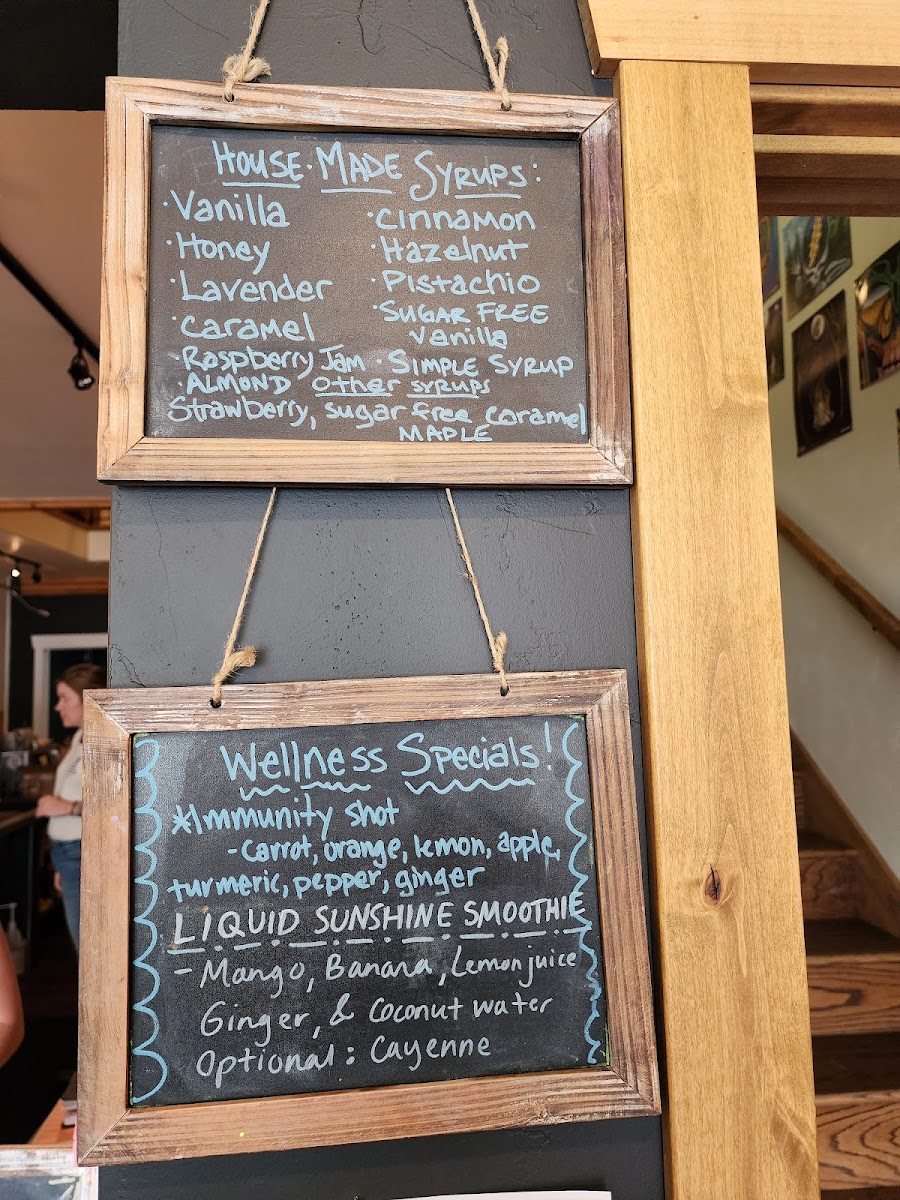 HOUSE·MADE SYRUPS:
·Vanilla ·cinnamon
·Honey ·Hazelnut
·Lavender ·Pistachio
·caramel ·SUGAR FREE
vanilla
·Raspberry Jam ·SIMPLE SYRUP
·ALMOND other syrups
Strawberry, sugar free caramel
MAPLE
Wellness Specials!
*Immunity shot
-carrot, orange, lemon, apple,
turmeric, pepper, ginger
LIQUID SUNSHINE SMOOTHIE
- Mango, Banana, Lemon juice
Ginger, & Coconut water
Optional: Cayenne